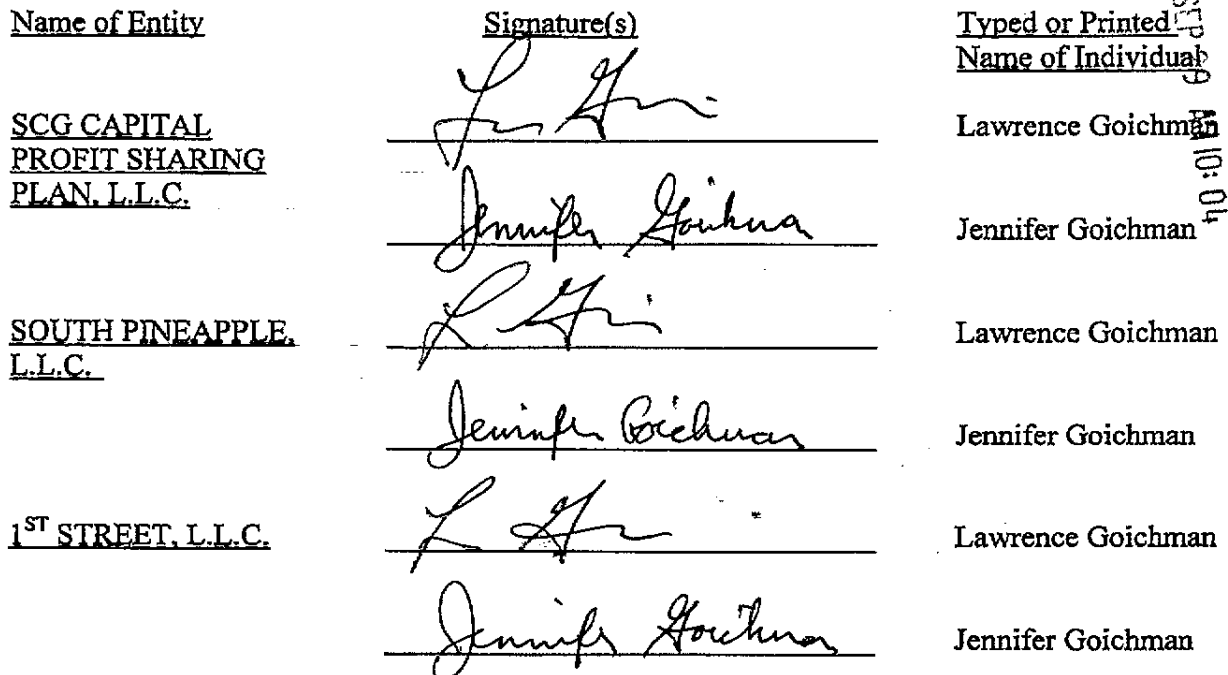 Name of Entity Signature(s) Typed or Printed
Name of Individual
SCG CAPITAL
PROFIT SHARING
PLAN, L.L.C.
Lawrence Goichman
Jennifer Goichman
Jennifer Goichman
SOUTH PINEAPPLE,
L.L.C.
Lawrence Goichman
Jennifer Goichman
Jennifer Goichman
1ST STREET, L.L.C.
Lawrence Goichman
Jennifer Goichman
Jennifer Goichman
SEP 9 AM 10: 04